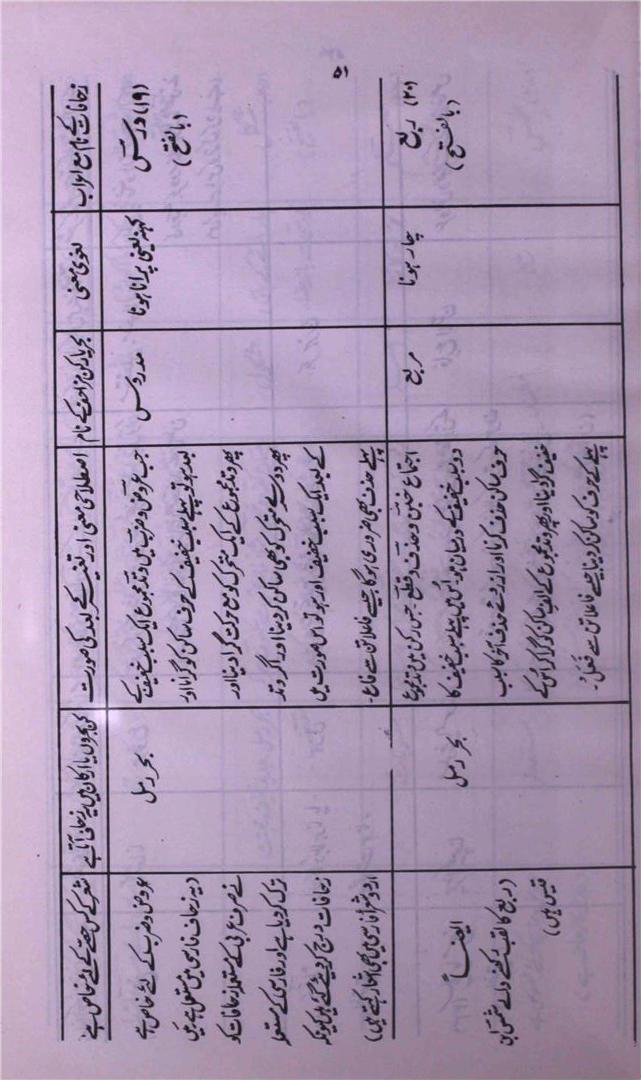 ۵۱
زحافات کے نام مع اعراب
لغوی معنی
بحر یا رکن مزاحف کے نام
اصطلاحی معنی اور تغیر کے بعد کی صورت
کن بحروں یا ارکان میں یہ زحاف آتا ہے
شعر کے کس حصے کے لئے خاص ہے
(۱۹) درس
(بالفتح)
کہنہ یعنی پرانا ہونا
مدروس
جب عروض و ضرب میں وتد مجموع ایک سبب خفیف کے
بعد ہو تو پہلے سبب خفیف کے حرف ساکن کو گرانا اور
پھر وتد مجموع کے ایک متحرک کو مع حرکت گرا دینا اور
پھر دوسرے متحرک کو بھی ساکن کر دینا اور اگر وتد
کے بعد ایک سبب خفیف اور ہو تو اس صورت میں
پہلے حذف بھی ضروری ہوگا جیسے فاعلاتن سے فاع ۔
بحر رمل
عروض و ضرب کے لئے خاص ہے
(یہ زحاف فارسی میں مستعمل ہے میں
نے صرف عربی کے مستعملہ زحافات کو
ترک کر دیا ہے اور فارسی کے مستعملہ
زحافات درج کر دیئے گئے ہیں کیونکہ
اردو شعرا فارسی میں بھی اشعار کہتے ہیں)
(۲۰) ربع
(بالفتح)
چار ہونا
مربع
اجتماع خبن و حذف و قطع جس رکن میں وتد مجموع
دو سبب خفیف کے درمیان ہو اس میں پہلے سبب خفیف کا
حرف ساکن حذف کرنا اور از روئے حذف آخر کا سبب
خفیف گرا دینا اور پھر وتد مجموع کے ساکن کو گرا کر اس کے
پہلے کے حرف کو ساکن کر دینا جیسے فاعلاتن سے فعل ۔
بحر رمل
ایضاً
(ربع کا لقب رکھنے والے شمس ابن
قیس ہیں)